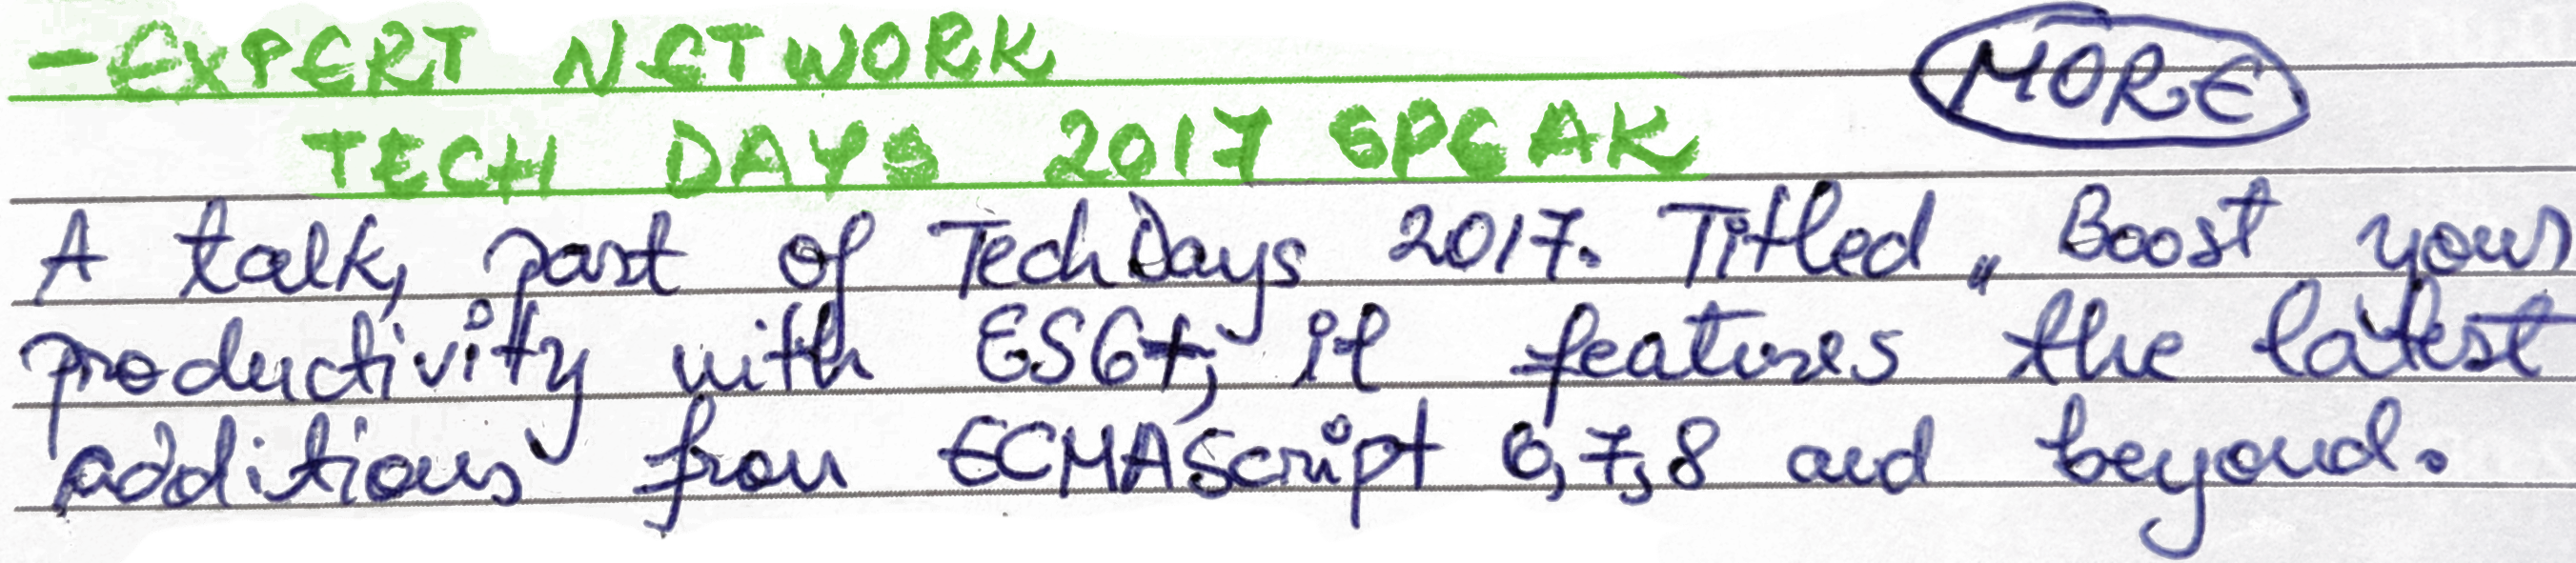 -EXPERT NETWORK
MORE
TECH DAYS 2017 SPEAK
A talk, part of TechDays 2017. Titled „Boost your
productivity with ES6+, it features the latest
additions from ECMAScript 6,7,8 and beyond.